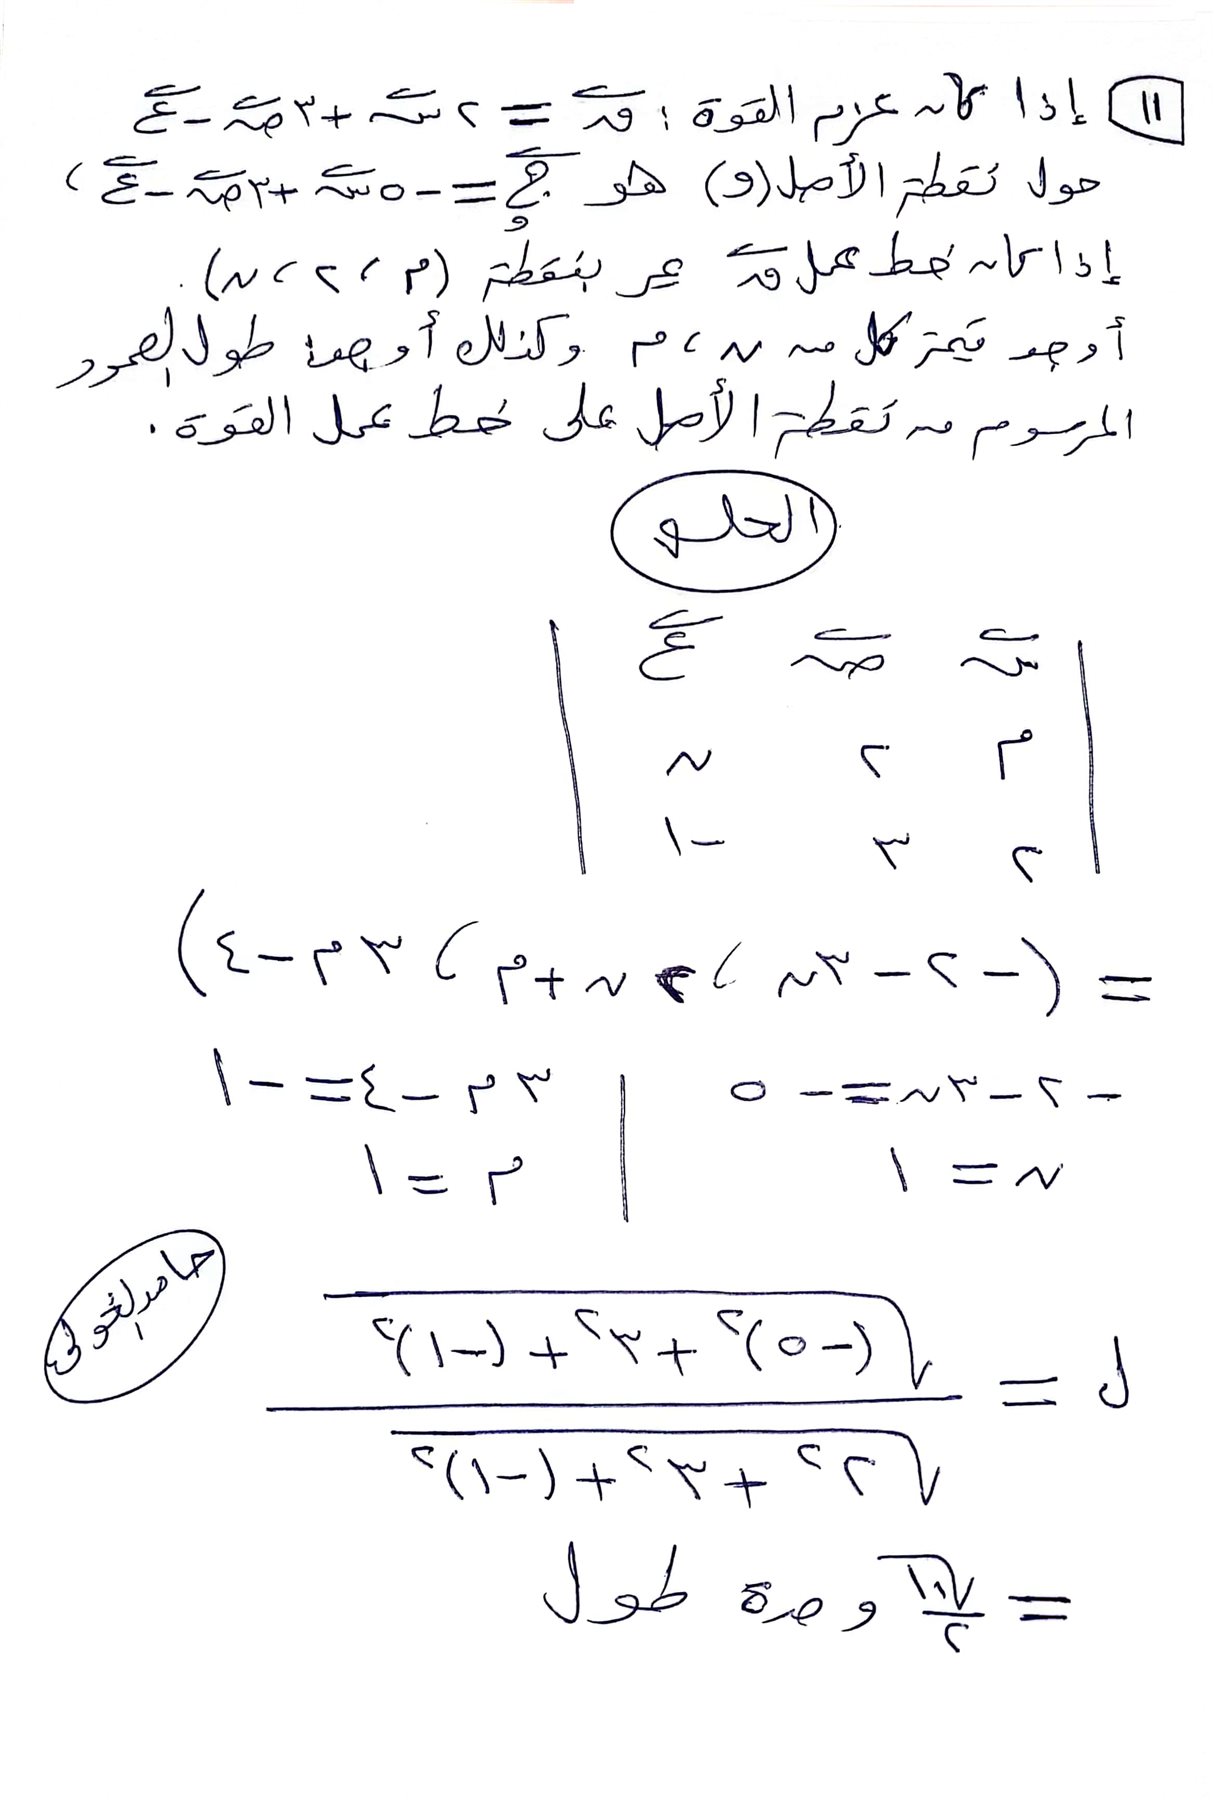 ١١ إذا كان عزم القوة : ق = ٢ س + ٣ ص - ع
حول نقطة الأصل (و) هو ج و = -٥ س + ٣ ص - ع ،
إذا كان خط عمل ق يمر بنقطة (م ، ٢ ، ن) .
أوجد قيمة كل من ن ، م وكذلك أوجد طول العمود
المرسوم من نقطة الأصل على خط عمل القوة .
الحلـــو
| س ص ع |
| م ٢ ن |
| ٢ ٣ -١ |
= (-٢ - ٣ن ، ٢ن + م ، ٣م - ٤)
-٢ - ٣ن = -٥ | ٣م - ٤ = -١
ن = ١ | م = ١
ل = √((-٥)² + ٣² + (-١)²) / √(٢² + ٣² + (-١)²)
حامد الغولى
= √١٠ / ٢ وحدة طول